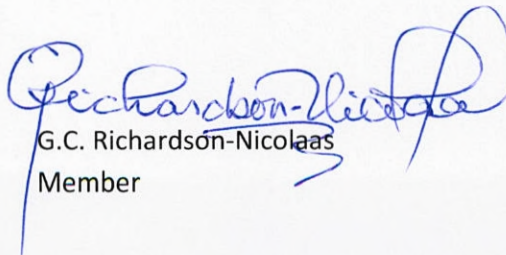 Richardson-Nicolaas
G.C. Richardson-Nicolaas
Member